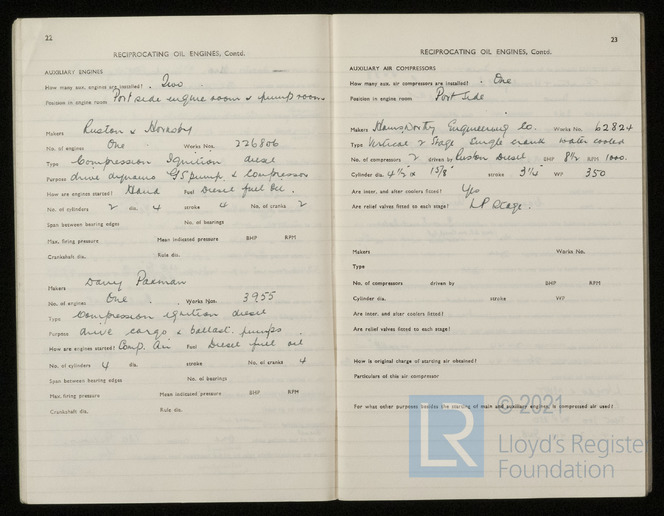 22
RECIPROCATING OIL ENGINES, Contd.
AUXILIARY ENGINES
How many aux. engines are installed? . Two
Position in engine room Port side engine room & pump room
Makers Ruston & Hornsby
No. of engines One Works Nos. 226806
Type Compression Ignition diesel
Purpose drive dynamo GS pump & compressor
How are engines started? Hand Fuel Diesel fuel oil.
No. of cylinders 2 dia. 4 stroke 4 No. of cranks 2
Span between bearing edges No. of bearings
Max. firing pressure Mean indicated pressure BHP RPM
Crankshaft dia. Rule dia.
Makers Davy Paxman
No. of engines One Works Nos. 3955
Type Compression ignition diesel
Purpose drive cargo & ballast pumps
How are engines started? Comp. Air Fuel Diesel fuel oil
No. of cylinders 4 dia. stroke No. of cranks 4
Span between bearing edges No. of bearings
Max. firing pressure Mean indicated pressure BHP RPM
Crankshaft dia. Rule dia.
23
RECIPROCATING OIL ENGINES, Contd.
AUXILIARY AIR COMPRESSORS
How many aux. air compressors are installed? . One
Position in engine room Port Side
Makers Hamworthy Engineering Co. Works No. 62824
Type Vertical 2 Stage Single crank water cooled
No. of compressors 2 driven by Ruston Diesel BHP 8½ RPM 1000.
Cylinder dia. 4½ x 1⅝ stroke 3¼ WP 350
Are inter. and after coolers fitted? Yes
Are relief valves fitted to each stage? LP Stage.
Makers Works No.
Type
No. of compressors driven by BHP RPM
Cylinder dia. stroke WP
Are inter. and after coolers fitted?
Are relief valves fitted to each stage?
How is original charge of starting air obtained?
Particulars of this air compressor
For what other purposes besides the starting of main and auxiliary engines is compressed air used?
LR
© 2021
Lloyd's Register
Foundation